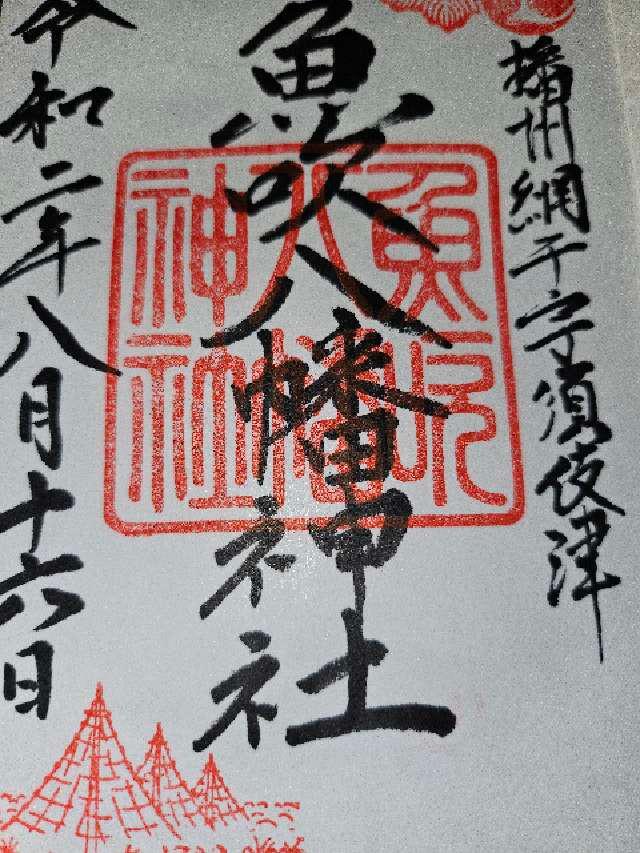 播州網干宇須伎津
魚吹八幡神社
令和二年八月十六日
魚吹
八幡
神社